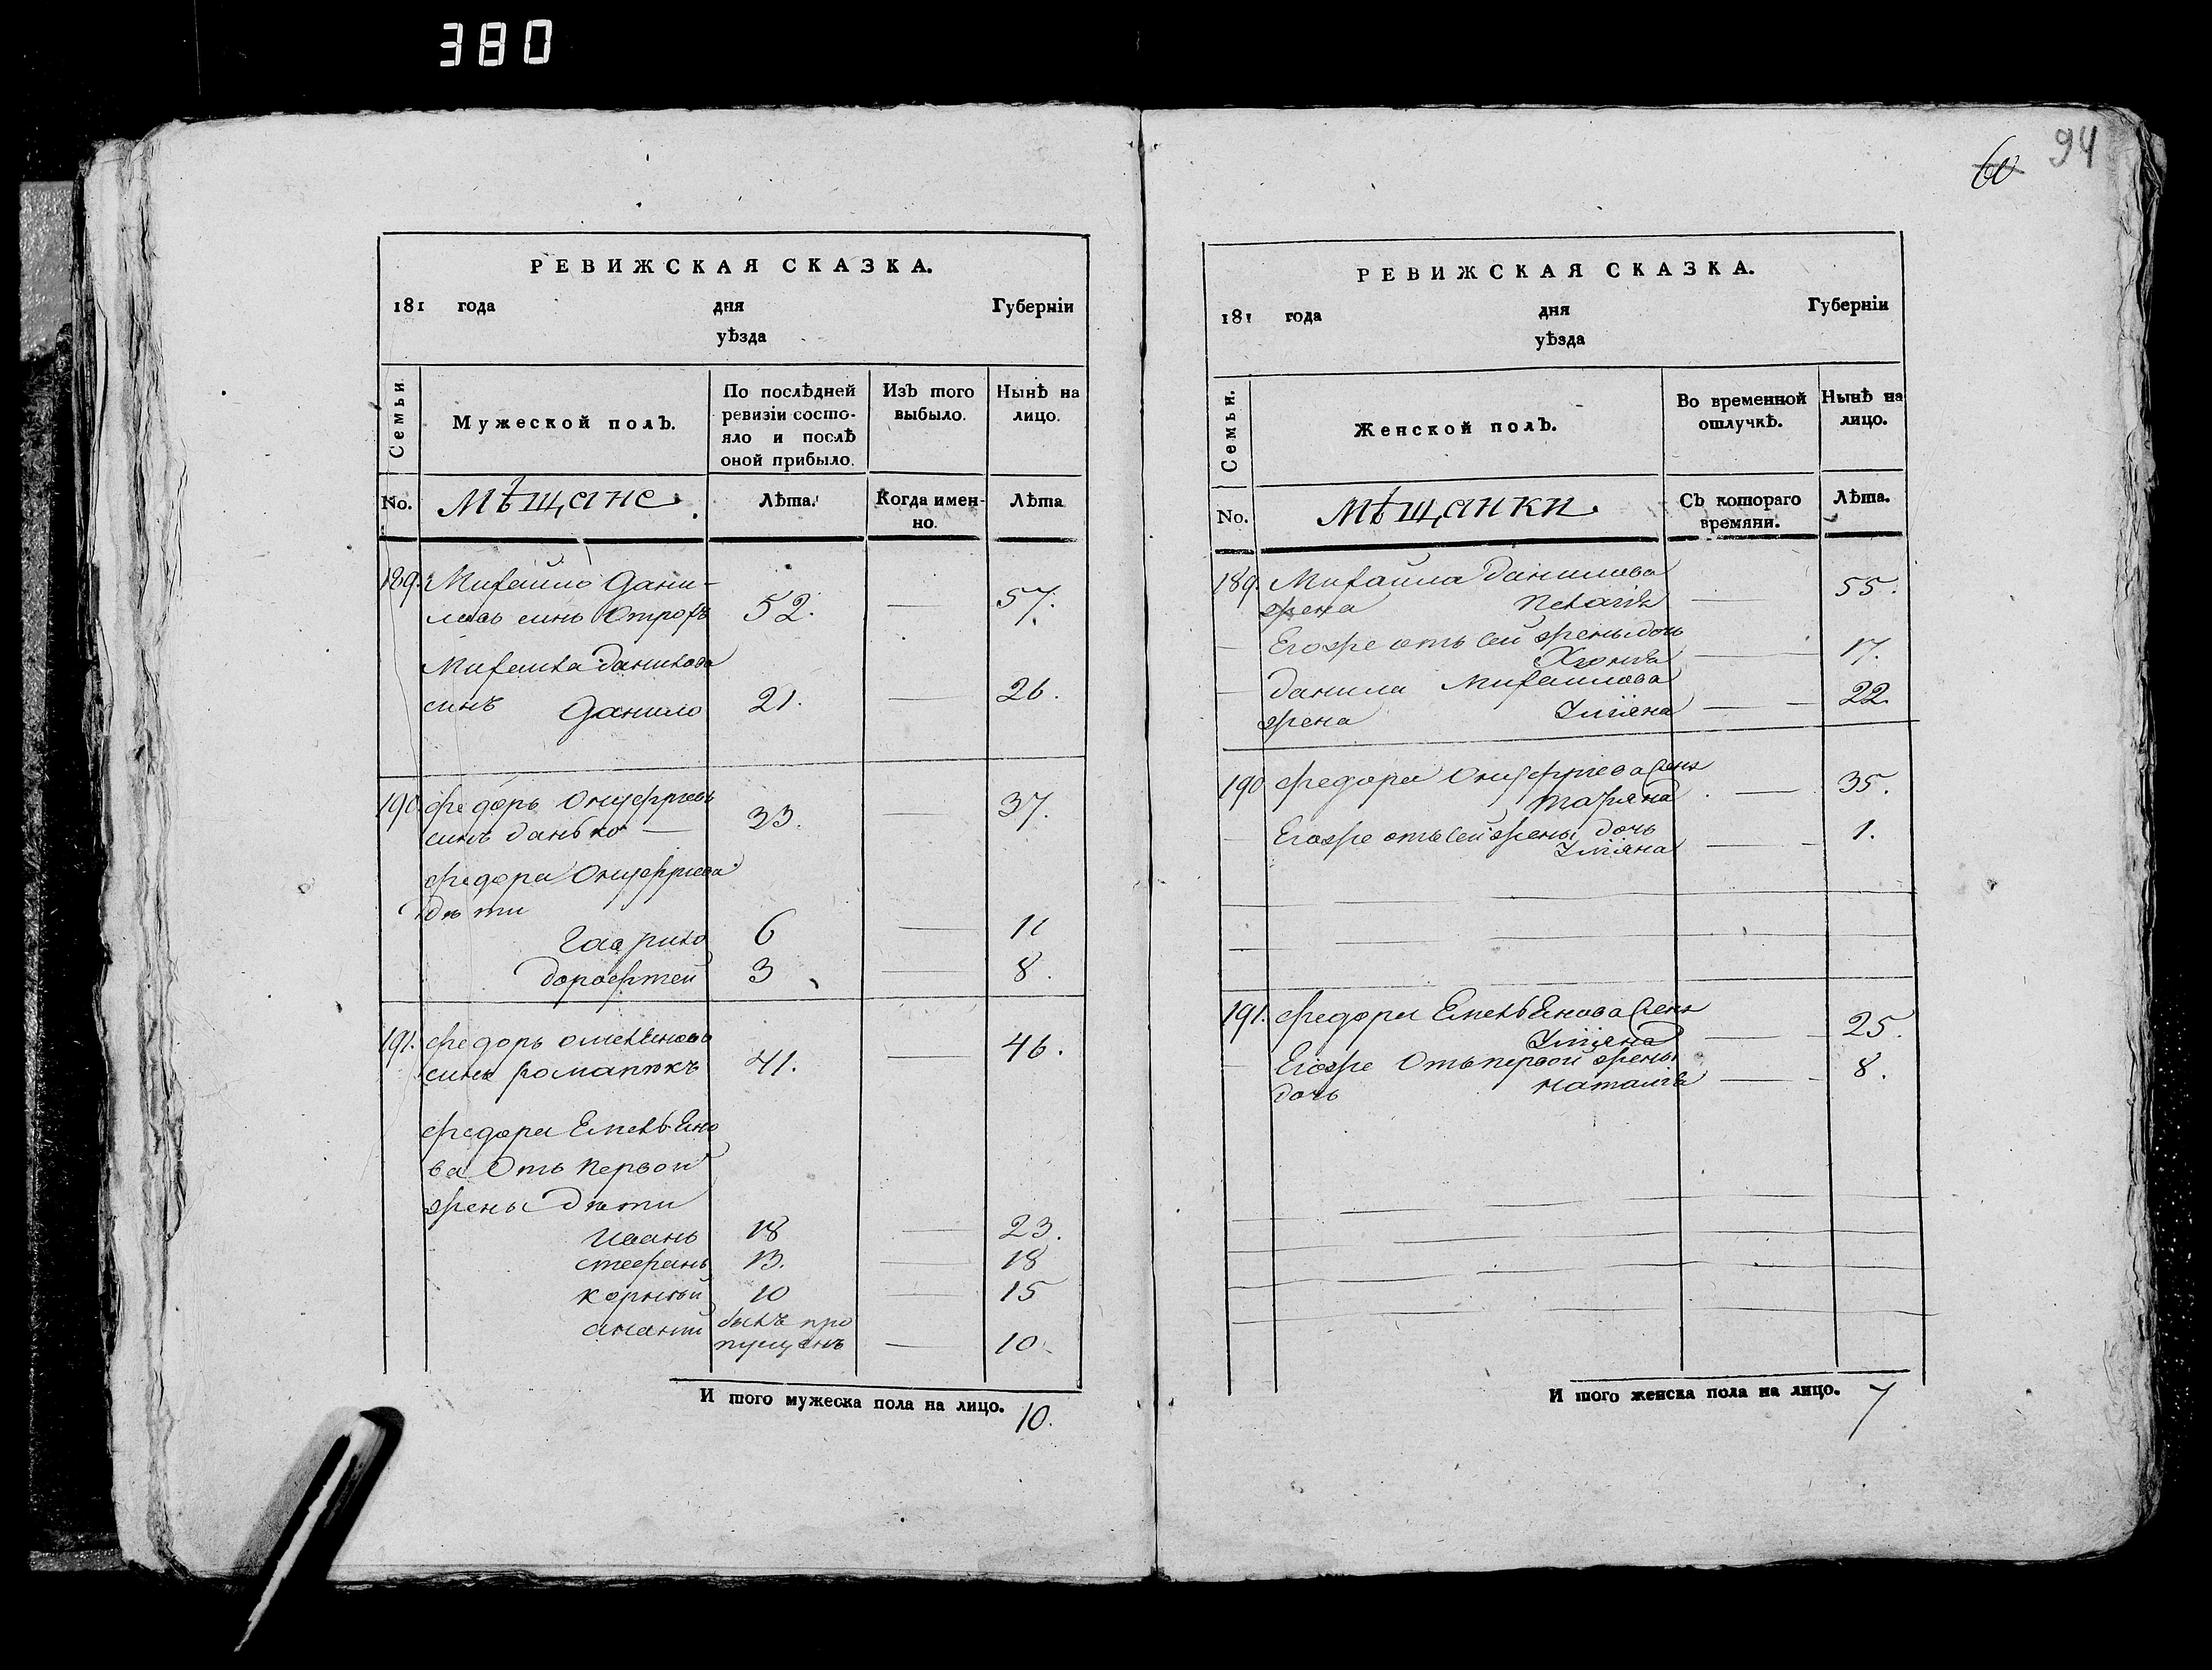 380
РЕВИЖСКАЯ СКАЗКА.
181 года дня Губерніи
уѣзда
Семьи.
Мужеской полъ.
По послѣдней ревизіи состояло и послѣ оной прибыло.
Изъ того выбыло.
Нынѣ на лицо.
No. мѣщане. Лѣта. Когда именно. Лѣта
189. Михайло Дани-
ловъ синъ 52. — 57.
Михаила данилова
синъ Данило 21. — 26.
190 федоръ Онуфріевъ
синъ данько — 33. — 37.
федора Онуфріева
дѣти
Гаврило 6 — 11
дорофтей 3 — 8.
191. федоръ омеляновъ
синъ романюкъ 41. — 46.
федора Емельяно
ва Отъ первои
жены дѣти
Иванъ 18 — 23.
стефанъ 13. — 18
корнѣй 10 — 15
ананій былъ про
пущенъ — 10.
И того мужеска пола на лицо. 10.
60 94
РЕВИЖСКАЯ СКАЗКА.
181 года дня Губерніи
уѣзда
Семьи.
Женской полъ.
Во временной отлучкѣ.
Нынѣ на лицо.
No. мѣщанки. Съ котораго времяни. Лѣта.
189. Михаила данилова
жена — 55.
Егоже отъ сей жены дочь
— 17.
данила Михаилова
жена Уліяна — 22.
190 федора Онуфріева жена
Маріяна — 35.
Егоже отъ сей жены дочь
Уліяна — 1.
191. федора Емельянова жена
Уліяна — 25.
Егоже Отъ первой жены
дочь наталія — 8.
И того женска пола на лицо. 7